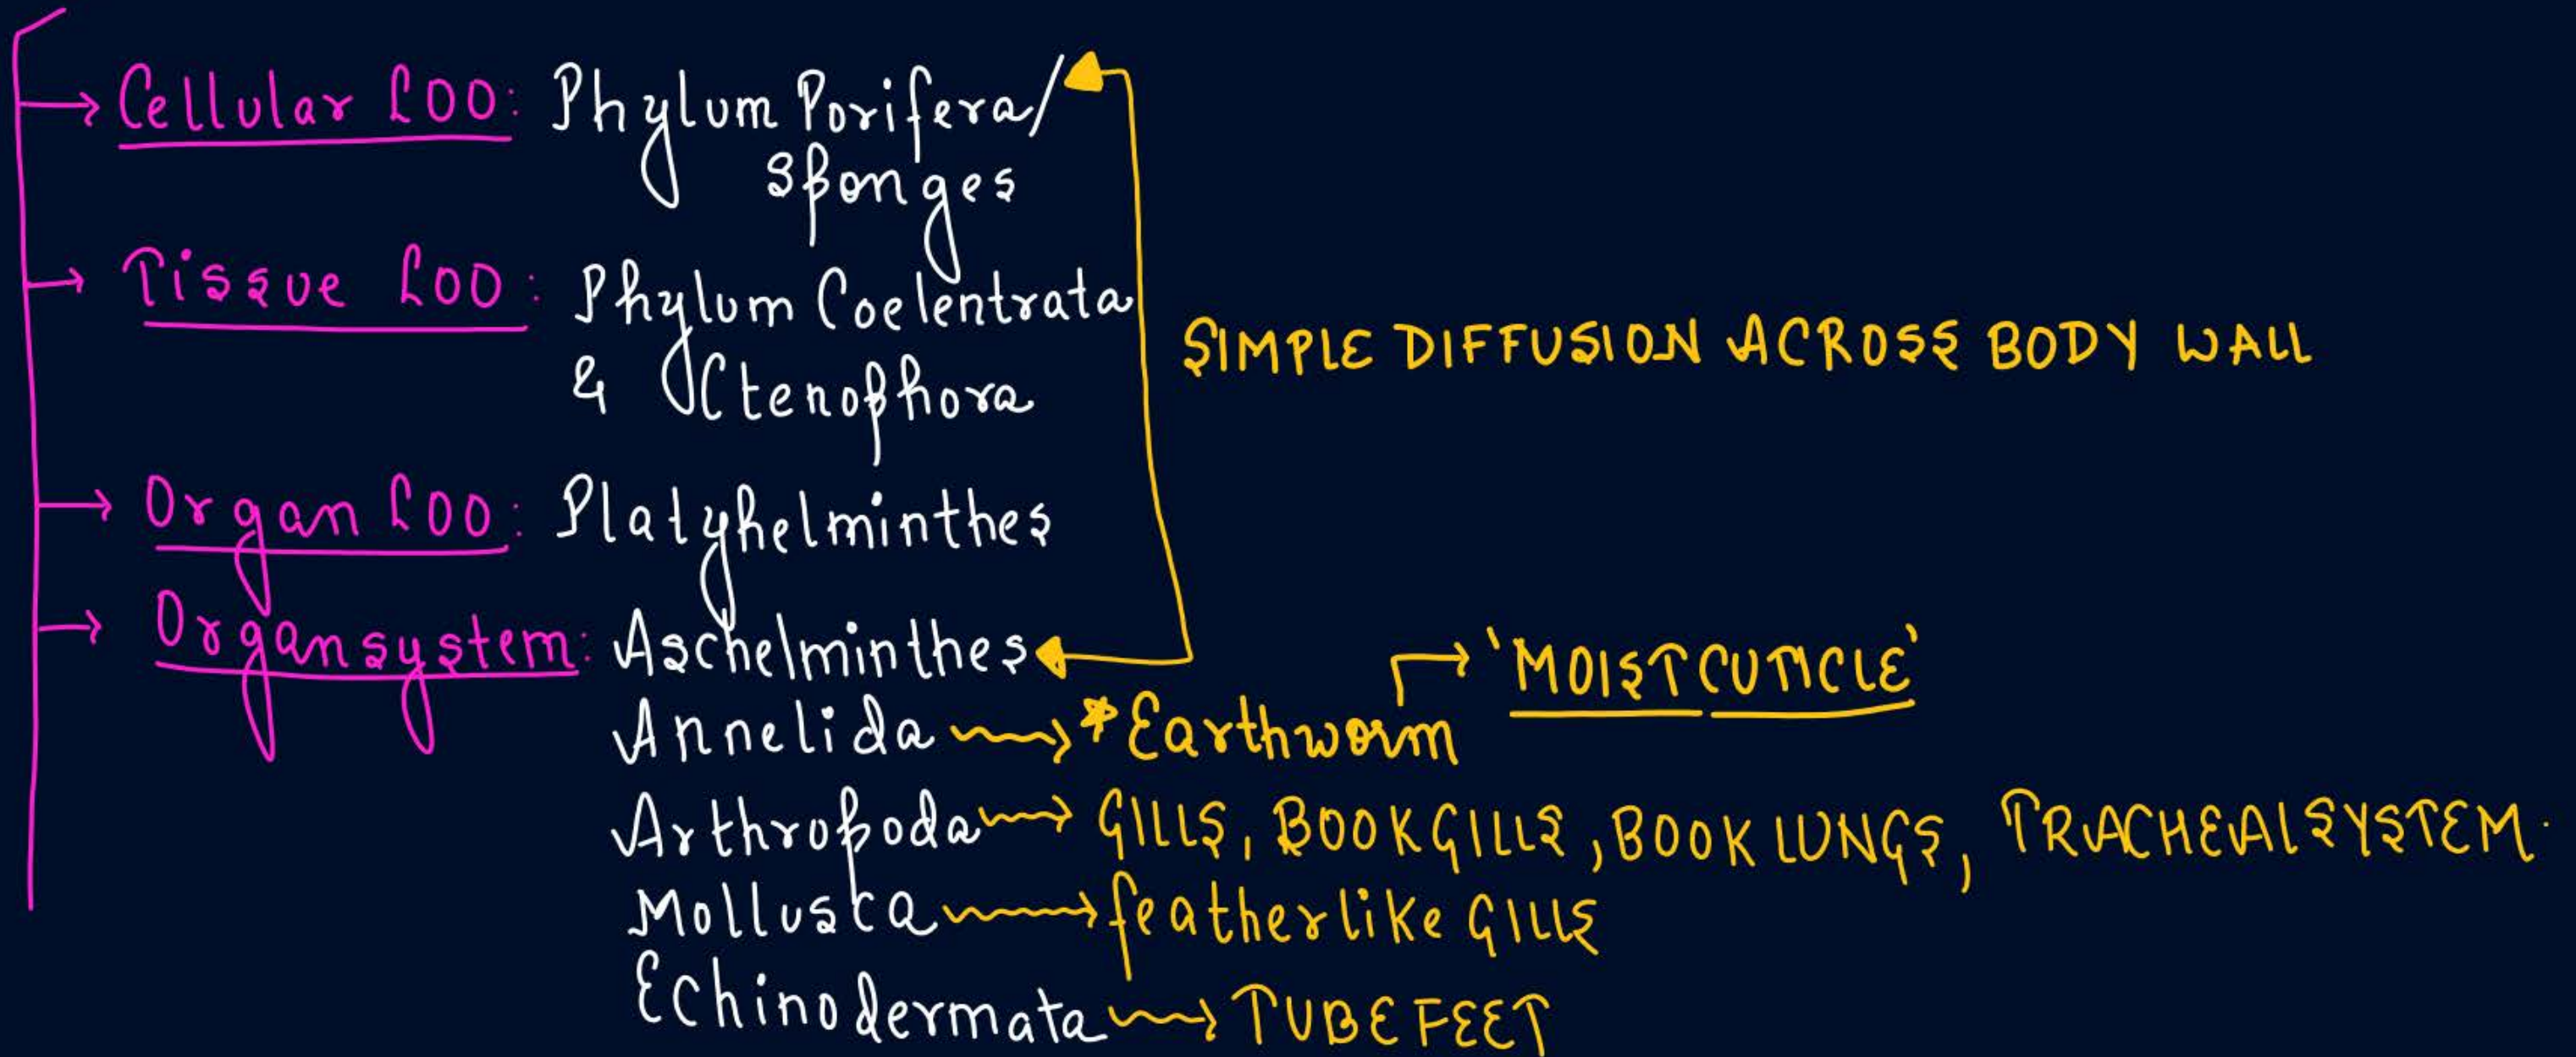 → Cellular LOO: Phylum Porifera/
Sponges
→ Tissue LOO: Phylum Coelentrata
& Ctenophora
SIMPLE DIFFUSION ACROSS BODY WALL
→ Organ LOO: Platyhelminthes
→ Organsystem: Aschelminthes
→ 'MOIST CUTICLE'
Annelida → *Earthworm
Arthropoda → GILLS, BOOK GILLS, BOOK LUNGS, TRACHEAL SYSTEM.
Mollusca → featherlike GILLS
Echinodermata → TUBE FEET